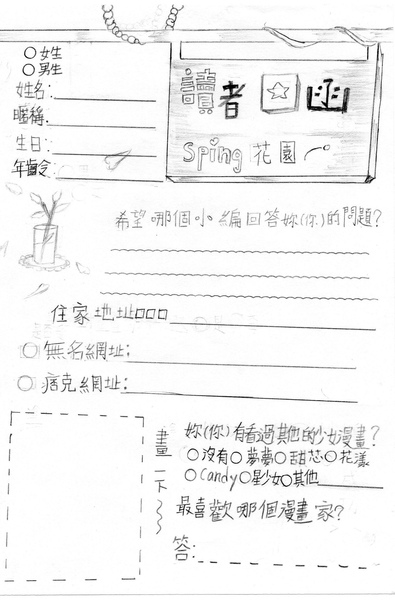 ○女生
○男生
姓名:
暱稱:
生日:
年齡:
讀者回函
Sping 花園
希望哪個小編回答妳(你)的問題?
住家地址□□□
○無名網址:
○痞克網址:
畫一下~~
妳(你)有看過其他的少女漫畫?
○沒有○夢夢○甜芯○花漾
○Candy○星少女○其他
最喜歡哪個漫畫家?
答: